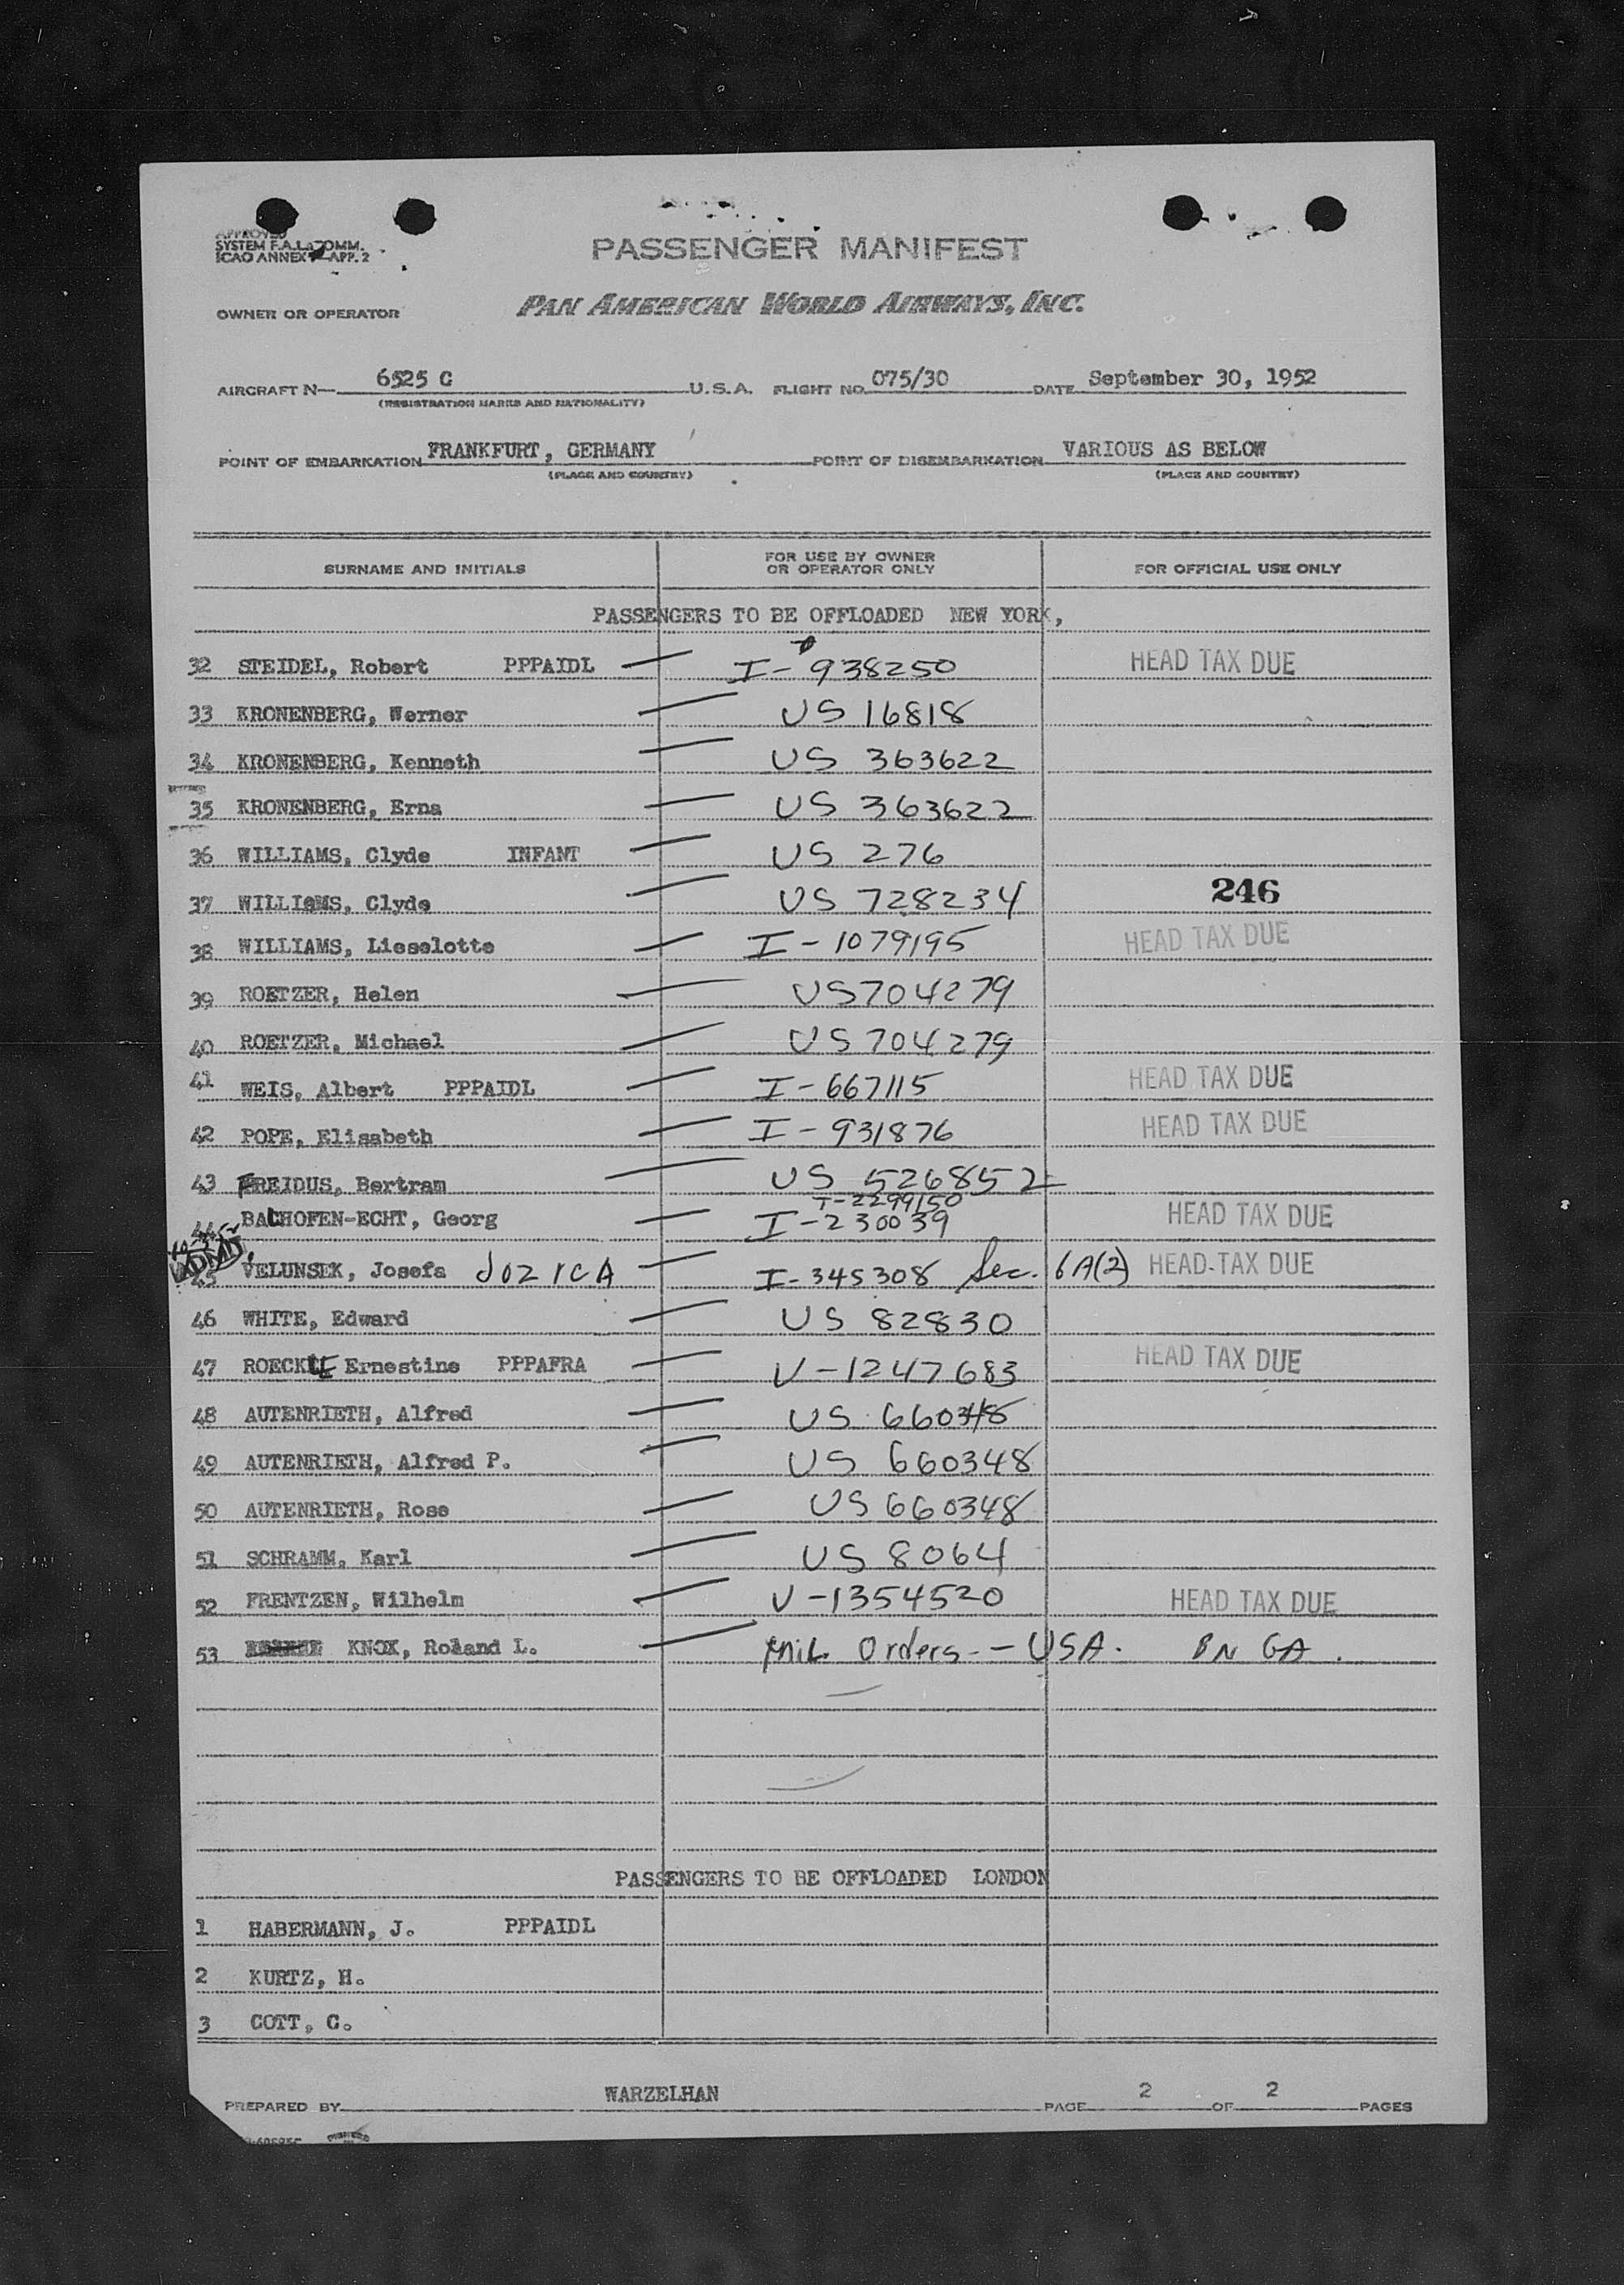 APPROVED
SYSTEM F.A.L. COMM.
ICAO ANNEX APP. 2
PASSENGER MANIFEST
OWNER OR OPERATOR PAN AMERICAN WORLD AIRWAYS, INC.
AIRCRAFT N— 6525 C U.S.A. FLIGHT NO. 075/30 DATE September 30, 1952
(REGISTRATION MARKS AND NATIONALITY)
POINT OF EMBARKATION FRANKFURT, GERMANY POINT OF DISEMBARKATION VARIOUS AS BELOW
(PLACE AND COUNTRY) (PLACE AND COUNTRY)
SURNAME AND INITIALS FOR USE BY OWNER OR OPERATOR ONLY FOR OFFICIAL USE ONLY
PASSENGERS TO BE OFFLOADED NEW YORK,
32 STEIDEL, Robert PPPAIDL I-938250 HEAD TAX DUE
33 KRONENBERG, Werner US 16818
34 KRONENBERG, Kenneth US 363622
35 KRONENBERG, Erna US 363622
36 WILLIAMS, Clyde INFANT US 276
37 WILLIAMS, Clyde US 728234 246
38 WILLIAMS, Lieselotte I-1079195 HEAD TAX DUE
39 ROETZER, Helen US704279
40 ROETZER, Michael US 704279
41 WEIS, Albert PPPAIDL I-667115 HEAD TAX DUE
42 POPE, Elisabeth I-931876 HEAD TAX DUE
43 FREIDUS, Bertram US 526852
I-2299150
44 BACHOFEN-ECHT, Georg I-230039 HEAD TAX DUE
ADMD
45 VELUNSEK, Josefa JOZICA I-345308 Sec. 6A(2) HEAD TAX DUE
46 WHITE, Edward US 82830
47 ROECKLE Ernestine PPPAFRA V-1247683 HEAD TAX DUE
48 AUTENRIETH, Alfred US 660348
49 AUTENRIETH, Alfred P. US 660348
50 AUTENRIETH, Rose US 660348
51 SCHRAMM, Karl US 8064
52 FRENTZEN, Wilhelm V-1354520 HEAD TAX DUE
53 KNOX, Roland L. Mil Orders - USA. BN GA.
PASSENGERS TO BE OFFLOADED LONDON
1 HABERMANN, J. PPPAIDL
2 KURTZ, H.
3 COTT, C.
PREPARED BY WARZELHAN PAGE 2 OF 2 PAGES